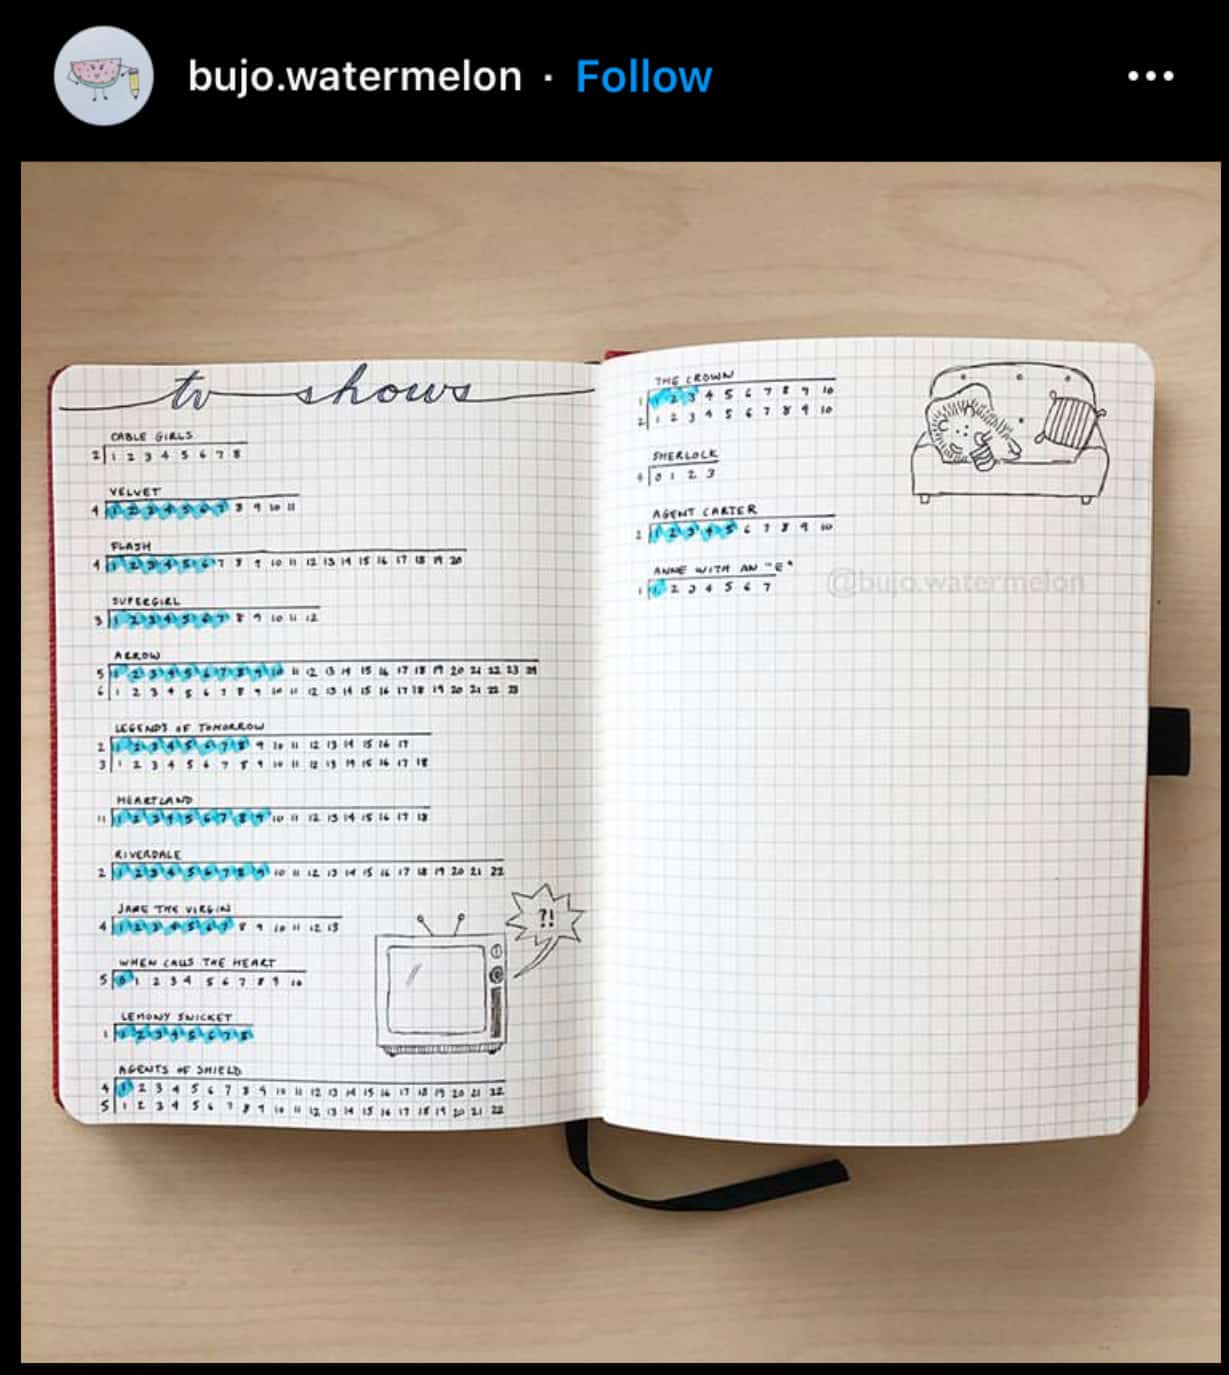 bujo.watermelon · Follow
tv shows
CABLE GIRLS
2 1 2 3 4 5 6 7 8
VELVET
4 1 2 3 4 5 6 7 8 9 10 11
FLASH
4 1 2 3 4 5 6 7 8 9 10 11 12 13 14 15 16 17 18 19 20
SUPERGIRL
3 1 2 3 4 5 6 7 8 9 10 11 12
ARROW
5 1 2 3 4 5 6 7 8 9 10 11 12 13 14 15 16 17 18 19 20 21 22 23 24
6 1 2 3 4 5 6 7 8 9 10 11 12 13 14 15 16 17 18 19 20 21 22 23
LEGENDS OF TOMORROW
2 1 2 3 4 5 6 7 8 9 10 11 12 13 14 15 16 17
3 1 2 3 4 5 6 7 8 9 10 11 12 13 14 15 16 17 18
HEARTLAND
11 1 2 3 4 5 6 7 8 9 10 11 12 13 14 15 16 17 18
RIVERDALE
2 1 2 3 4 5 6 7 8 9 10 11 12 13 14 15 16 17 18 19 20 21 22
JANE THE VIRGIN
4 1 2 3 4 5 6 7 8 9 10 11 12 13
WHEN CALLS THE HEART
5 0 1 2 3 4 5 6 7 8 9 10
LEMONY SNICKET
1 1 2 3 4 5 6 7 8
AGENTS OF SHIELD
4 1 2 3 4 5 6 7 8 9 10 11 12 13 14 15 16 17 18 19 20 21 22
5 1 2 3 4 5 6 7 8 9 10 11 12 13 14 15 16 17 18 19 20 21 22
?!
THE CROWN
1 1 2 3 4 5 6 7 8 9 10
2 1 2 3 4 5 6 7 8 9 10
SHERLOCK
0 1 2 3
AGENT CARTER
2 1 2 3 4 5 6 7 8 9 10
ANNE WITH AN "E"
1 1 2 3 4 5 6 7
@bujo.watermelon